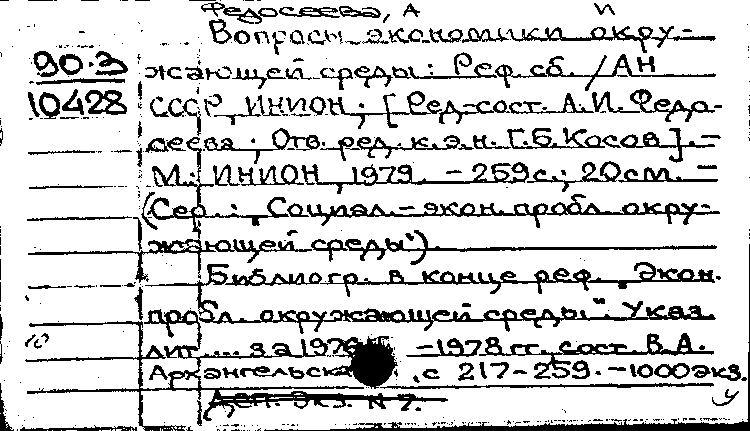 Федосеева, А И
Вопросы экономики окру-
90-3 жающей среды: Реф. сб. / АН
10428 СССР, ИНИОН; [Ред.-сост. А.И. Федо-
сеева; Отв. ред. к.э.н. Г.Б. Косов]. -
М.: ИНИОН, 1979. - 259 с.; 20 см. -
(Сер.: „Социал.-экон. пробл. окру-
жающей среды").
Библиогр. в конце реф. „Экон.
пробл. окружающей среды". Указ.
10 лит. ... за 1976 -1978 гг. сост. В.А.
Архангельская, с 217-259. - 1000 экз.
Деп. Экз. N 7. У